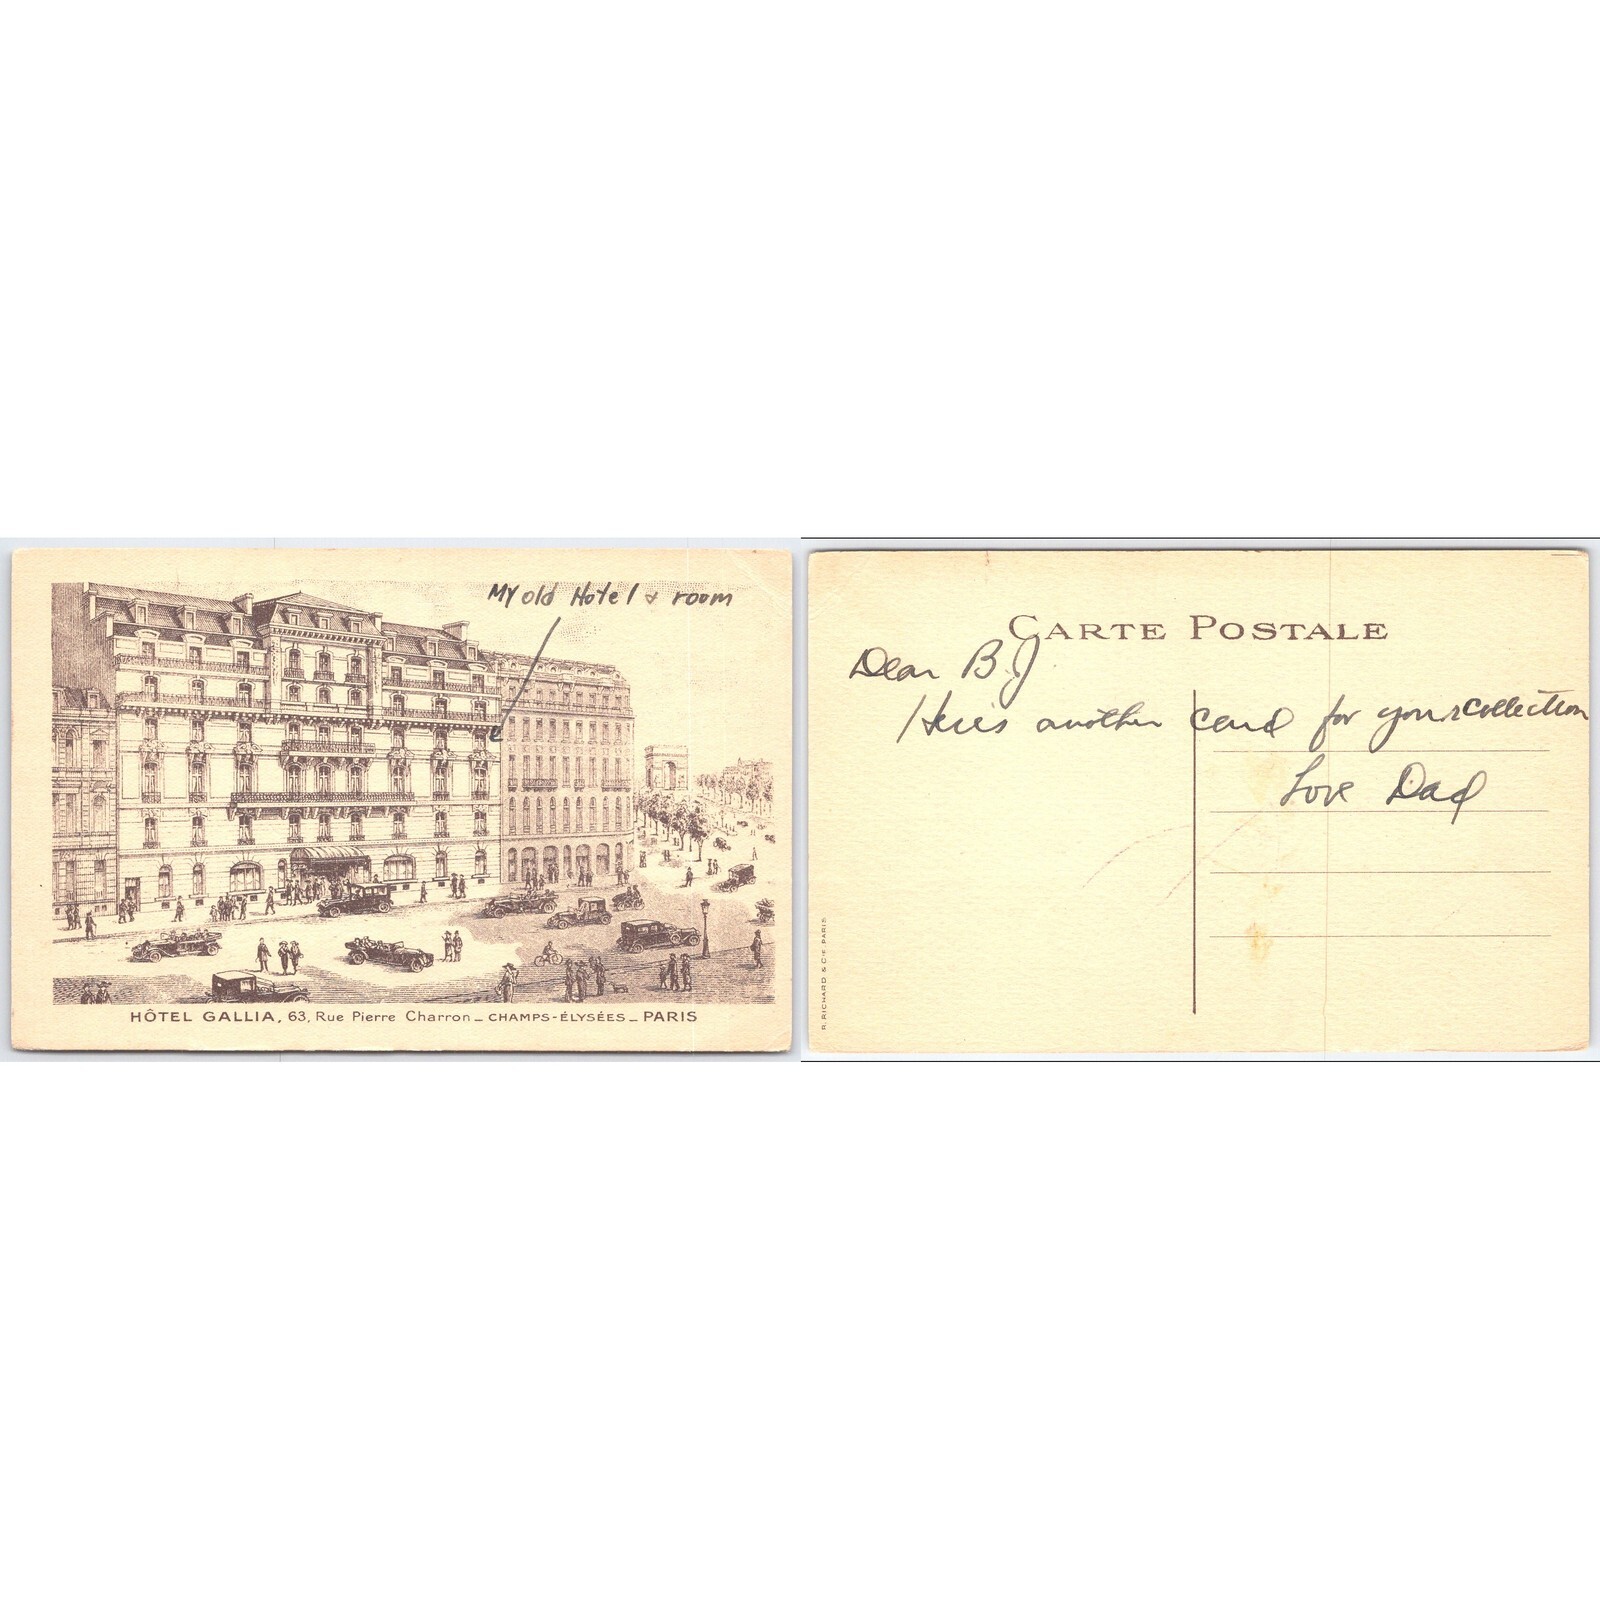 My old Hotel & room
HÔTEL GALLIA, 63, Rue Pierre Charron _ CHAMPS-ÉLYSÉES _ PARIS
CARTE POSTALE
Dear B.J
Here's another card for your collection
Love Dad
R. RICHARD & Cie PARIS